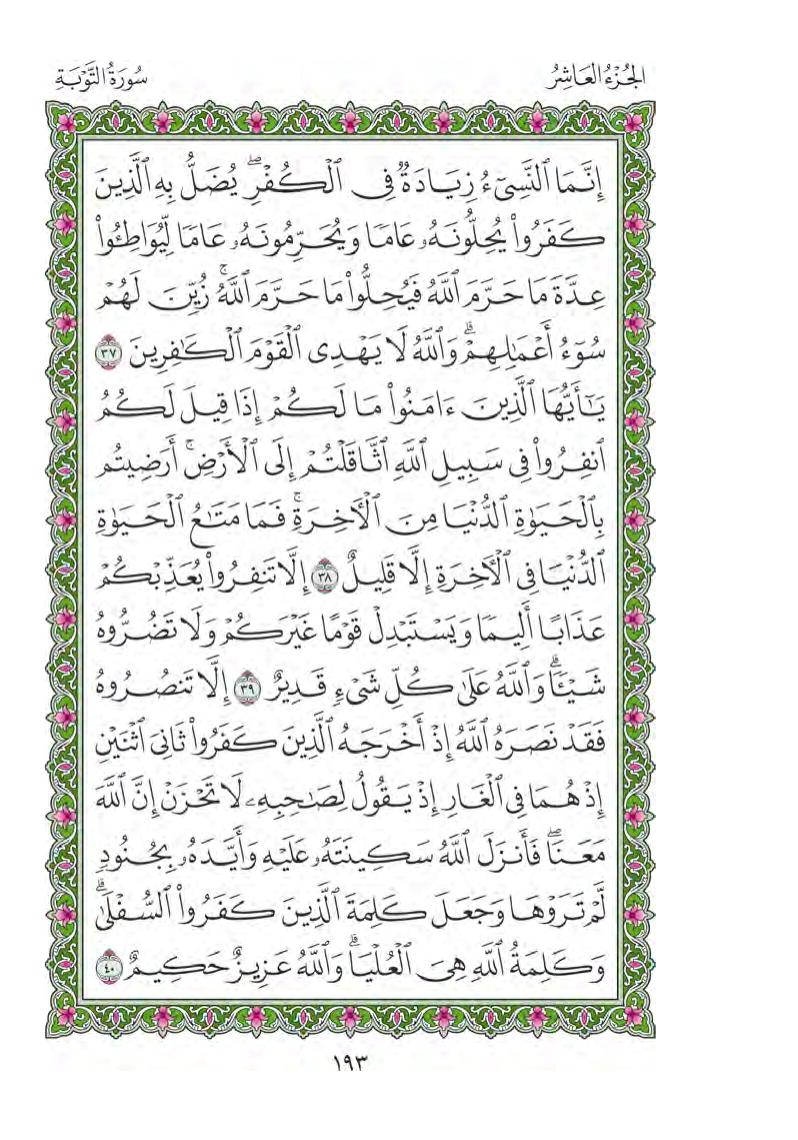 الجُزْءُ العَاشِرُ
سُورَةُ التَّوْبَةِ
إِنَّمَا ٱلنَّسِىٓءُ زِيَادَةٌ فِى ٱلْكُفْرِ ۖ يُضَلُّ بِهِ ٱلَّذِينَ
كَفَرُوا۟ يُحِلُّونَهُۥ عَامًا وَيُحَرِّمُونَهُۥ عَامًا لِّيُوَاطِـُٔوا۟
عِدَّةَ مَا حَرَّمَ ٱللَّهُ فَيُحِلُّوا۟ مَا حَرَّمَ ٱللَّهُ ۚ زُيِّنَ لَهُمْ
سُوٓءُ أَعْمَـٰلِهِمْ ۗ وَٱللَّهُ لَا يَهْدِى ٱلْقَوْمَ ٱلْكَـٰفِرِينَ ٣٧
يَـٰٓأَيُّهَا ٱلَّذِينَ ءَامَنُوا۟ مَا لَكُمْ إِذَا قِيلَ لَكُمُ
ٱنفِرُوا۟ فِى سَبِيلِ ٱللَّهِ ٱثَّاقَلْتُمْ إِلَى ٱلْأَرْضِ ۚ أَرَضِيتُم
بِٱلْحَيَوٰةِ ٱلدُّنْيَا مِنَ ٱلْـَٔاخِرَةِ ۚ فَمَا مَتَـٰعُ ٱلْحَيَوٰةِ
ٱلدُّنْيَا فِى ٱلْـَٔاخِرَةِ إِلَّا قَلِيلٌ ٣٨ إِلَّا تَنفِرُوا۟ يُعَذِّبْكُمْ
عَذَابًا أَلِيمًا وَيَسْتَبْدِلْ قَوْمًا غَيْرَكُمْ وَلَا تَضُرُّوهُ
شَيْـًٔا ۗ وَٱللَّهُ عَلَىٰ كُلِّ شَىْءٍ قَدِيرٌ ٣٩ إِلَّا تَنصُرُوهُ
فَقَدْ نَصَرَهُ ٱللَّهُ إِذْ أَخْرَجَهُ ٱلَّذِينَ كَفَرُوا۟ ثَانِىَ ٱثْنَيْنِ
إِذْ هُمَا فِى ٱلْغَارِ إِذْ يَقُولُ لِصَـٰحِبِهِۦ لَا تَحْزَنْ إِنَّ ٱللَّهَ
مَعَنَا ۖ فَأَنزَلَ ٱللَّهُ سَكِينَتَهُۥ عَلَيْهِ وَأَيَّدَهُۥ بِجُنُودٍ
لَّمْ تَرَوْهَا وَجَعَلَ كَلِمَةَ ٱلَّذِينَ كَفَرُوا۟ ٱلسُّفْلَىٰ ۗ
وَكَلِمَةُ ٱللَّهِ هِىَ ٱلْعُلْيَا ۗ وَٱللَّهُ عَزِيزٌ حَكِيمٌ ٤٠
١٩٣